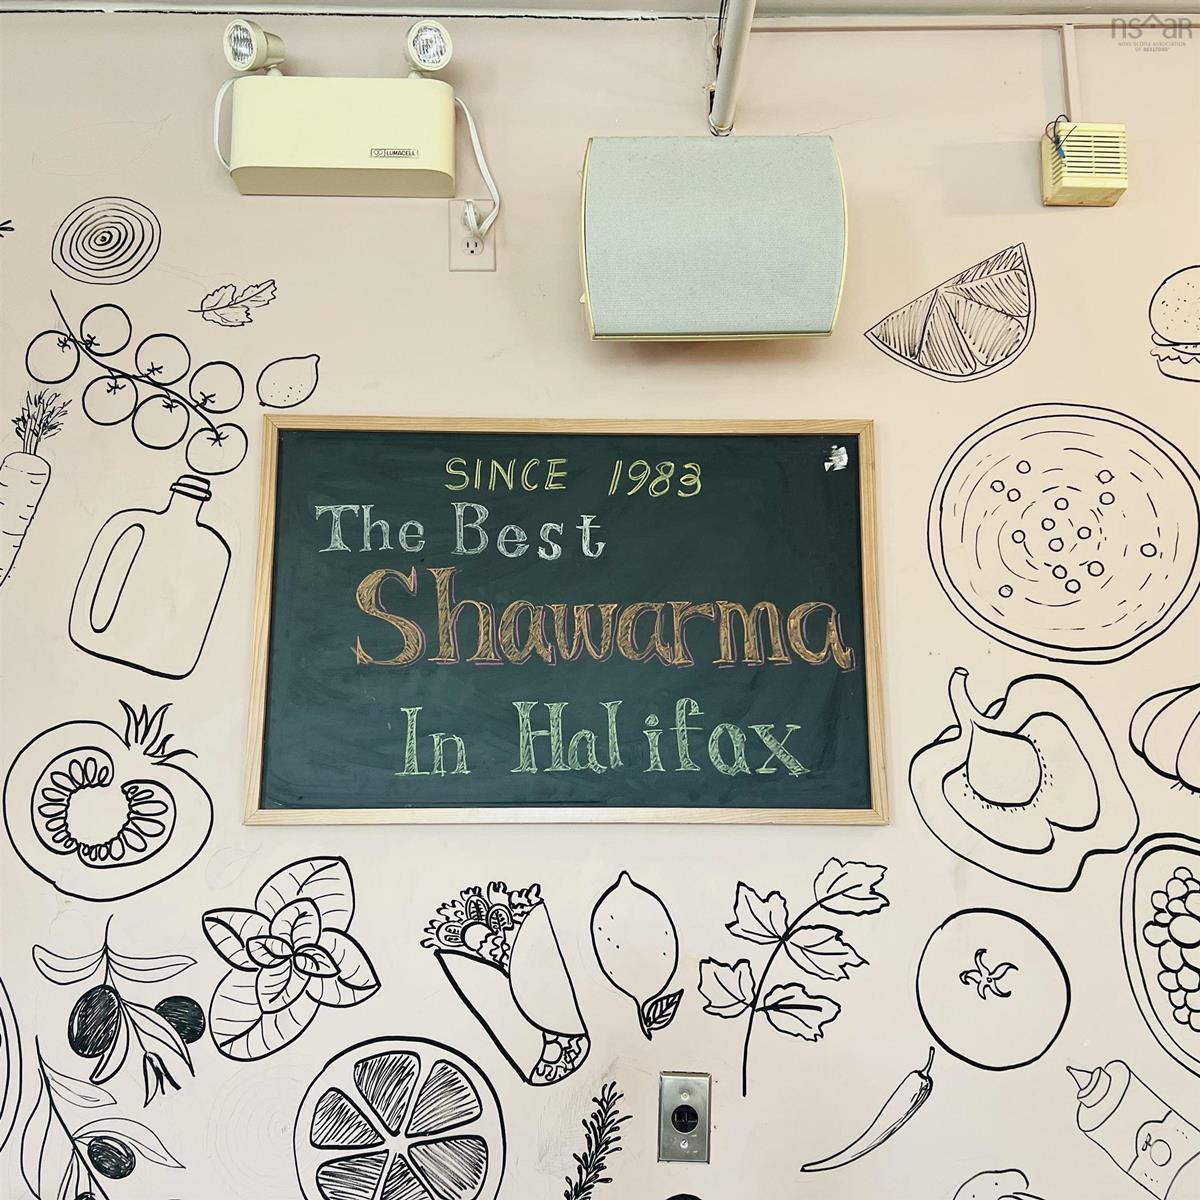 nsaar
NOVA SCOTIA ASSOCIATION
OF REALTORS®
LUMACELL
SINCE 1983
The Best
Shawarma
In Halifax